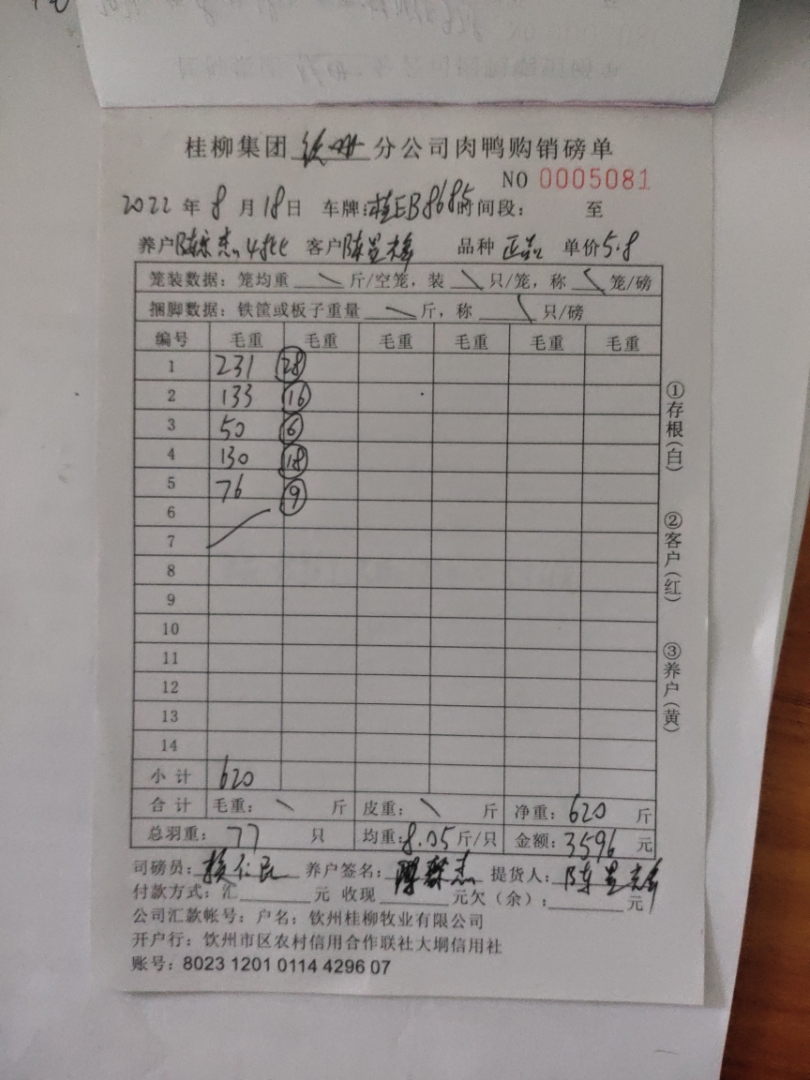 桂柳集团 钦州 分公司肉鸭购销磅单
NO 0005081
2022 年 8 月 18 日 车牌:桂EB8685 时间段: 至
养户 陈 杰 客户 陈 品种 正品 单价 5.8
笼装数据: 笼均重 \ 斤/空笼, 装 \ 只/笼, 称 \ 笼/磅
捆脚数据: 铁筐或板子重量 \ 斤, 称 \ 只/磅
编号 毛重 毛重 毛重 毛重 毛重 毛重
1 231 28
2 133 16
3 50 6
4 130 18
5 76 9
6
7
8
9
10
11
12
13
14
小计 620
合计 毛重: \ 斤 皮重: \ 斤 净重: 620 斤
总羽重: 77 只 均重: 8.05 斤/只 金额: 3596 元
司磅员: 杨仁民 养户签名: 陈 杰 提货人: 陈
付款方式: 汇 元 收现 元欠(余): 元
公司汇款帐号: 户名: 钦州桂柳牧业有限公司
开户行: 饮州市区农村信用合作联社大垌信用社
账号: 8023 1201 0114 4296 07
①存根(白)
②客户(红)
③养户(黄)